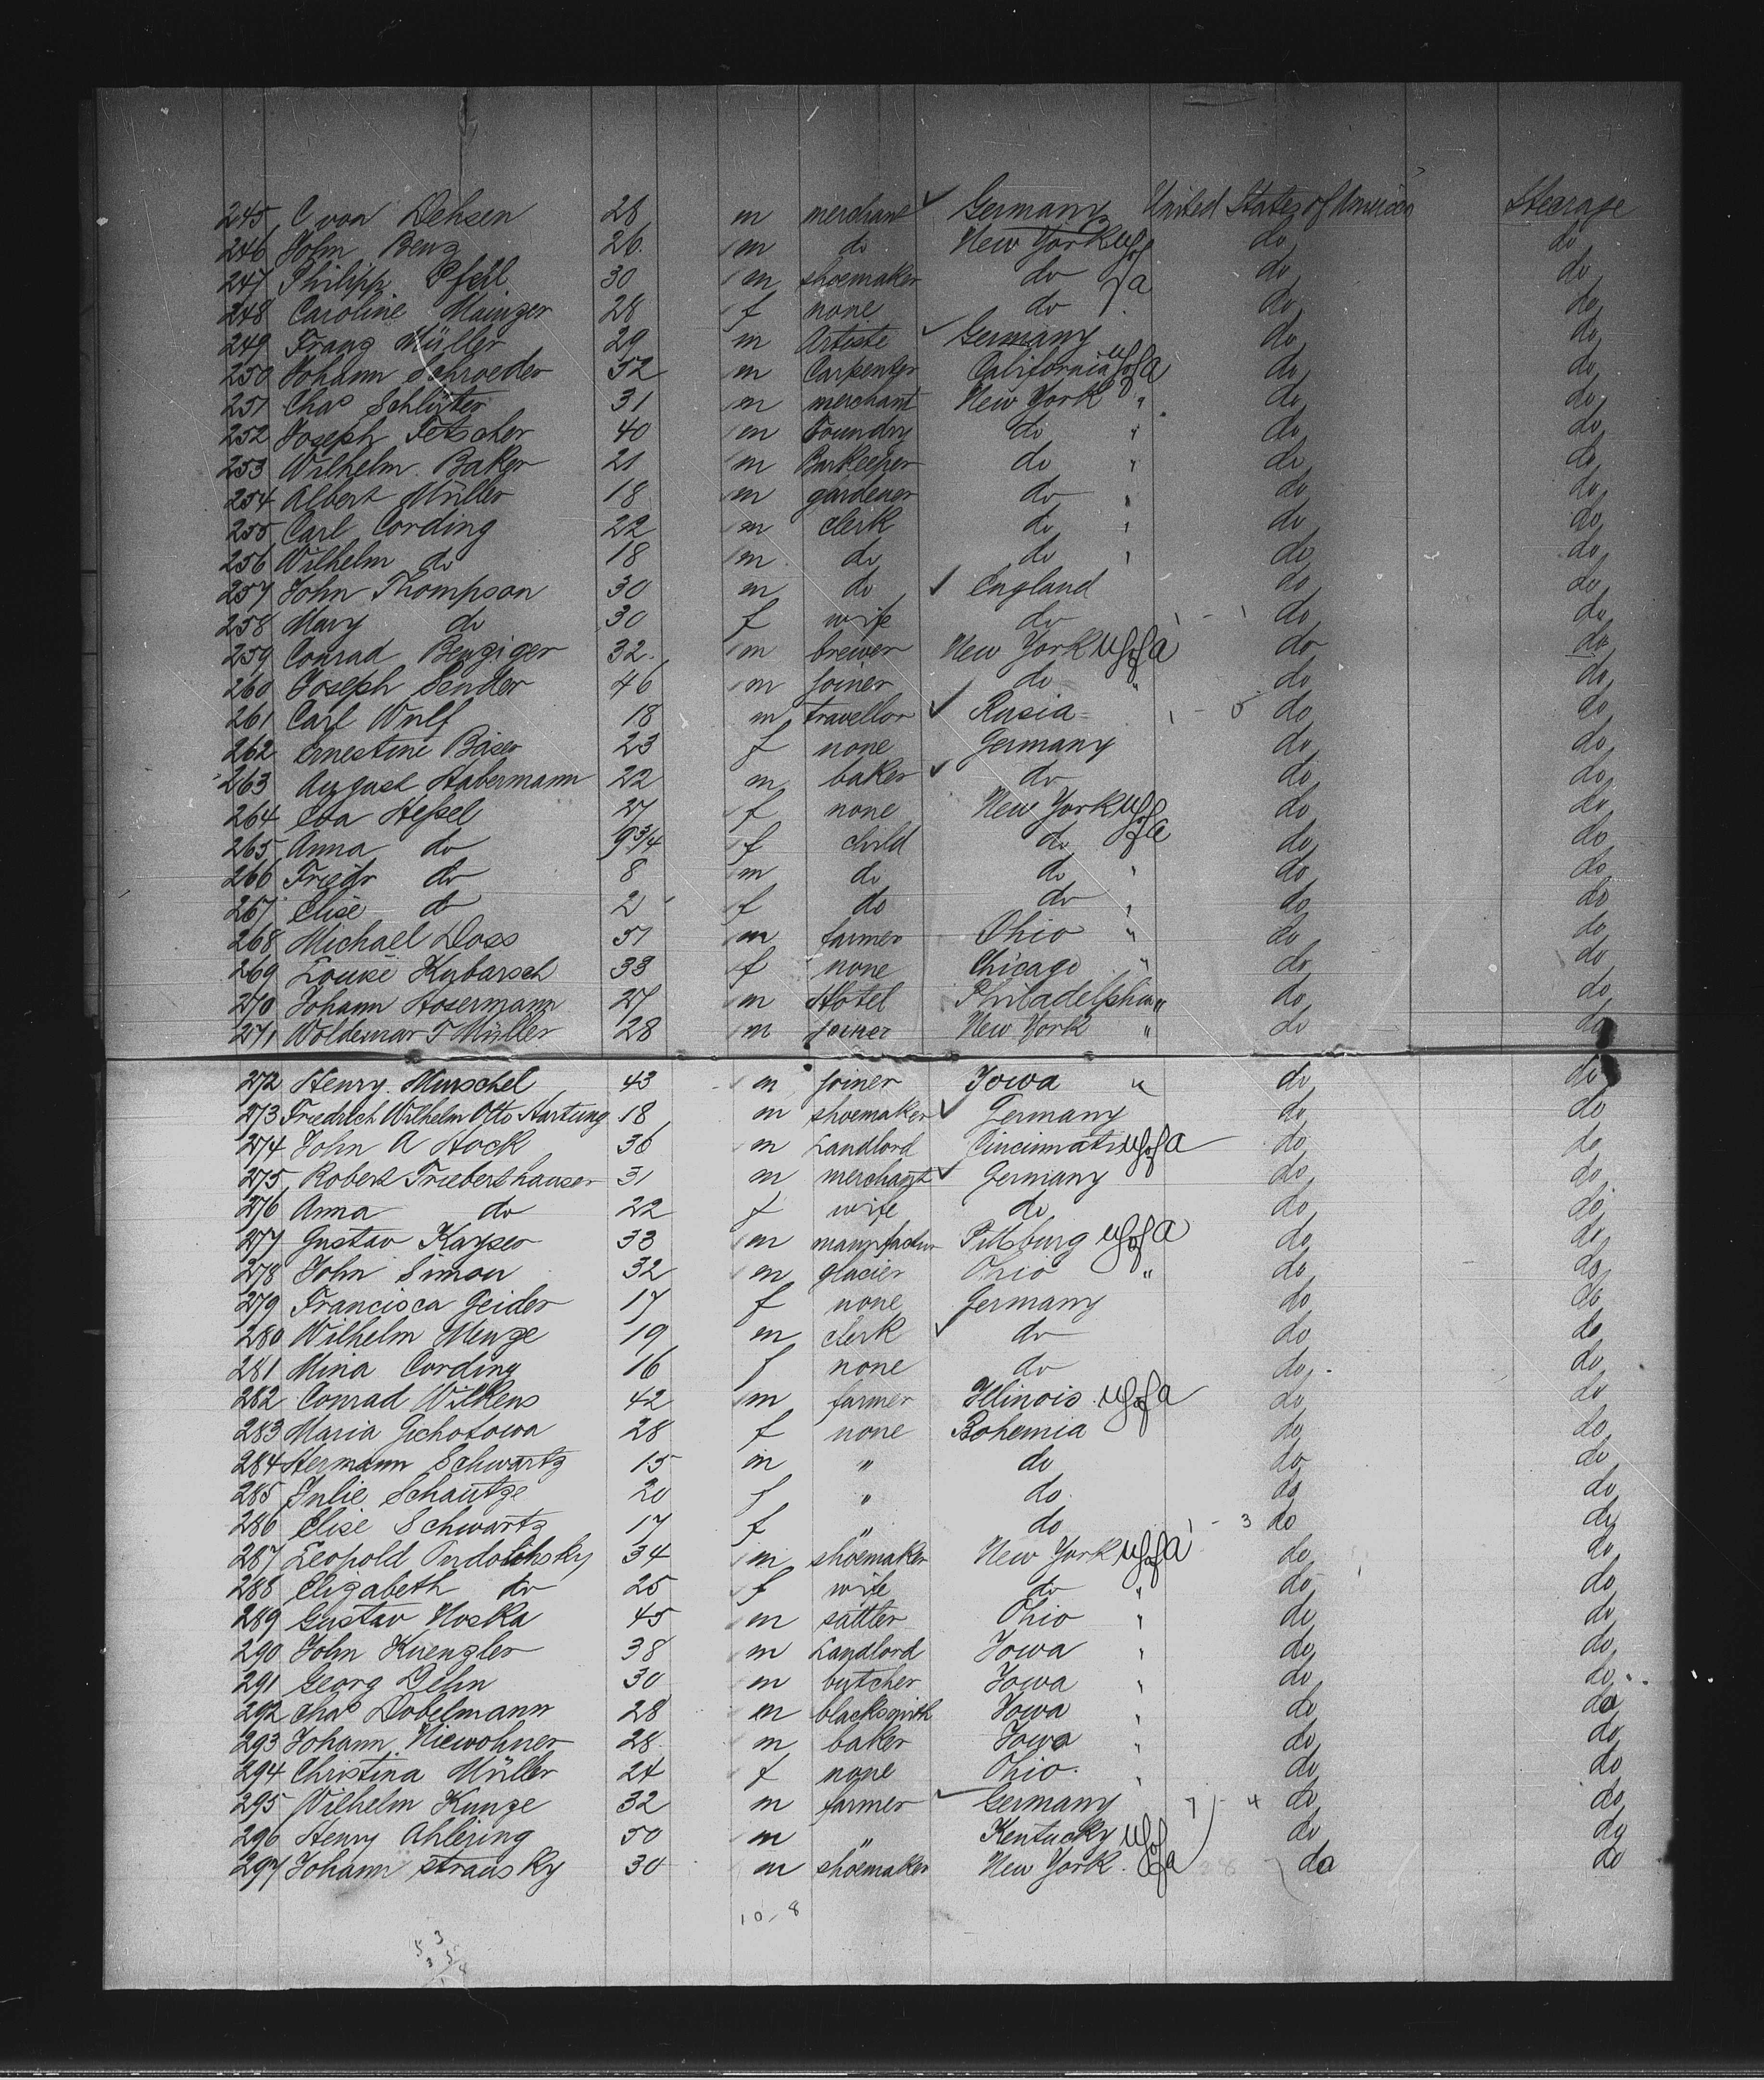 245 C von Dehsen 28 m merchant ✓ Germany United States of America Stearage
246 John Benz 26 m do New York U S of do do
247 Philipp Pfeil 30 m shoemaker do a do do
248 Caroline Mainzer 28 f none do do do
249 Franz Müller 29 m Artiste ✓ Germany do do
250 Johann Schroeder 52 m Carpenter California U S of a do do
251 Chas Schlüter 31 m merchant New York " do do
252 Joseph Fetscher 40 m Foundry do " do do
253 Wilhelm Baker 21 m Barkeeper do " do do
254 Albert Müller 18 m gardener do " do do
255 Carl Cording 22 m clerk do " do do
256 Wilhelm do 18 m do do " do do
257 John Thompson 30 m do ✓ England do do
258 Mary do 30 f wife do 1 - 1 do do
259 Conrad Benziger 32 m brewer New York U S of a do do
260 Joseph Sender 46 m joiner do " do do
261 Carl Wulf 18 m travellor ✓ Rusia 1 - 5 do do
262 Ernestine Bäser 23 f none Germany do do
263 August Habermann 22 m baker ✓ do do do
264 Eva Heßel 27 f none New York U S of do do
265 Anna do 9 3/4 f child do a do do
266 Friedr do 8 m do do " do do
267 Elise do 2 f do do " do do
268 Michael Doss 51 m farmer Ohio " do do
269 Louise Kybarsch 33 f none Chicago " do do
270 Johann Hosermann 27 m Hotel Philadelphia " do do
271 Woldemar T Müller 28 m New York " do do
272 Henry Murschel 43 m joiner Iowa " do do
273 Friedrich Wilhelm Otto Hartung 18 m shoemaker ✓ Germany do do
274 John A Hock 36 m Landlord Cincinnati U S of a do do
275 Robert Friebertshauser 31 m merchant ✓ Germany do do
276 Anna do 22 f wife do do do
277 Gustav Kayser 33 m manufactur Pittsburg U S of a do do
278 John Simon 32 m glacier Ohio " do do
279 Francisca Geider 17 f none Germany do do
280 Wilhelm Menze 19 m clerk ✓ do do do
281 Mina Cording 16 f none do do do
282 Conrad Wilkens 42 m farmer Illinois U S of a do do
283 Maria Gichotowa 28 f none Bohemia do do
284 Hermann Schwartz 15 m " do do do
285 Julie Schautze 20 f " do do do
286 Elise Schwartz 17 f " do 1 - 3 do do
287 Leopold 34 m shoemaker New York U S of a do do
288 Elizabeth do 25 f wife do " do do
289 Gustav Noska 45 m sattler Ohio " do do
290 John Kuenzler 38 m Landlord Iowa " do do
291 Georg Dehn 30 m butcher Iowa " do do
292 Chas Dobelmann 28 m blacksmith Iowa " do do
293 Johann Niewohner 28 m baker Iowa " do do
294 Christina Müller 24 f none Ohio " do do
295 Wilhelm Kunze 32 m farmer ✓ Germany 7 - 4 do do
296 Henry Ahlering 50 m " Kentucky U S of do do
297 Johann Stransky 30 m shoemaker New York a do do
10 - 8